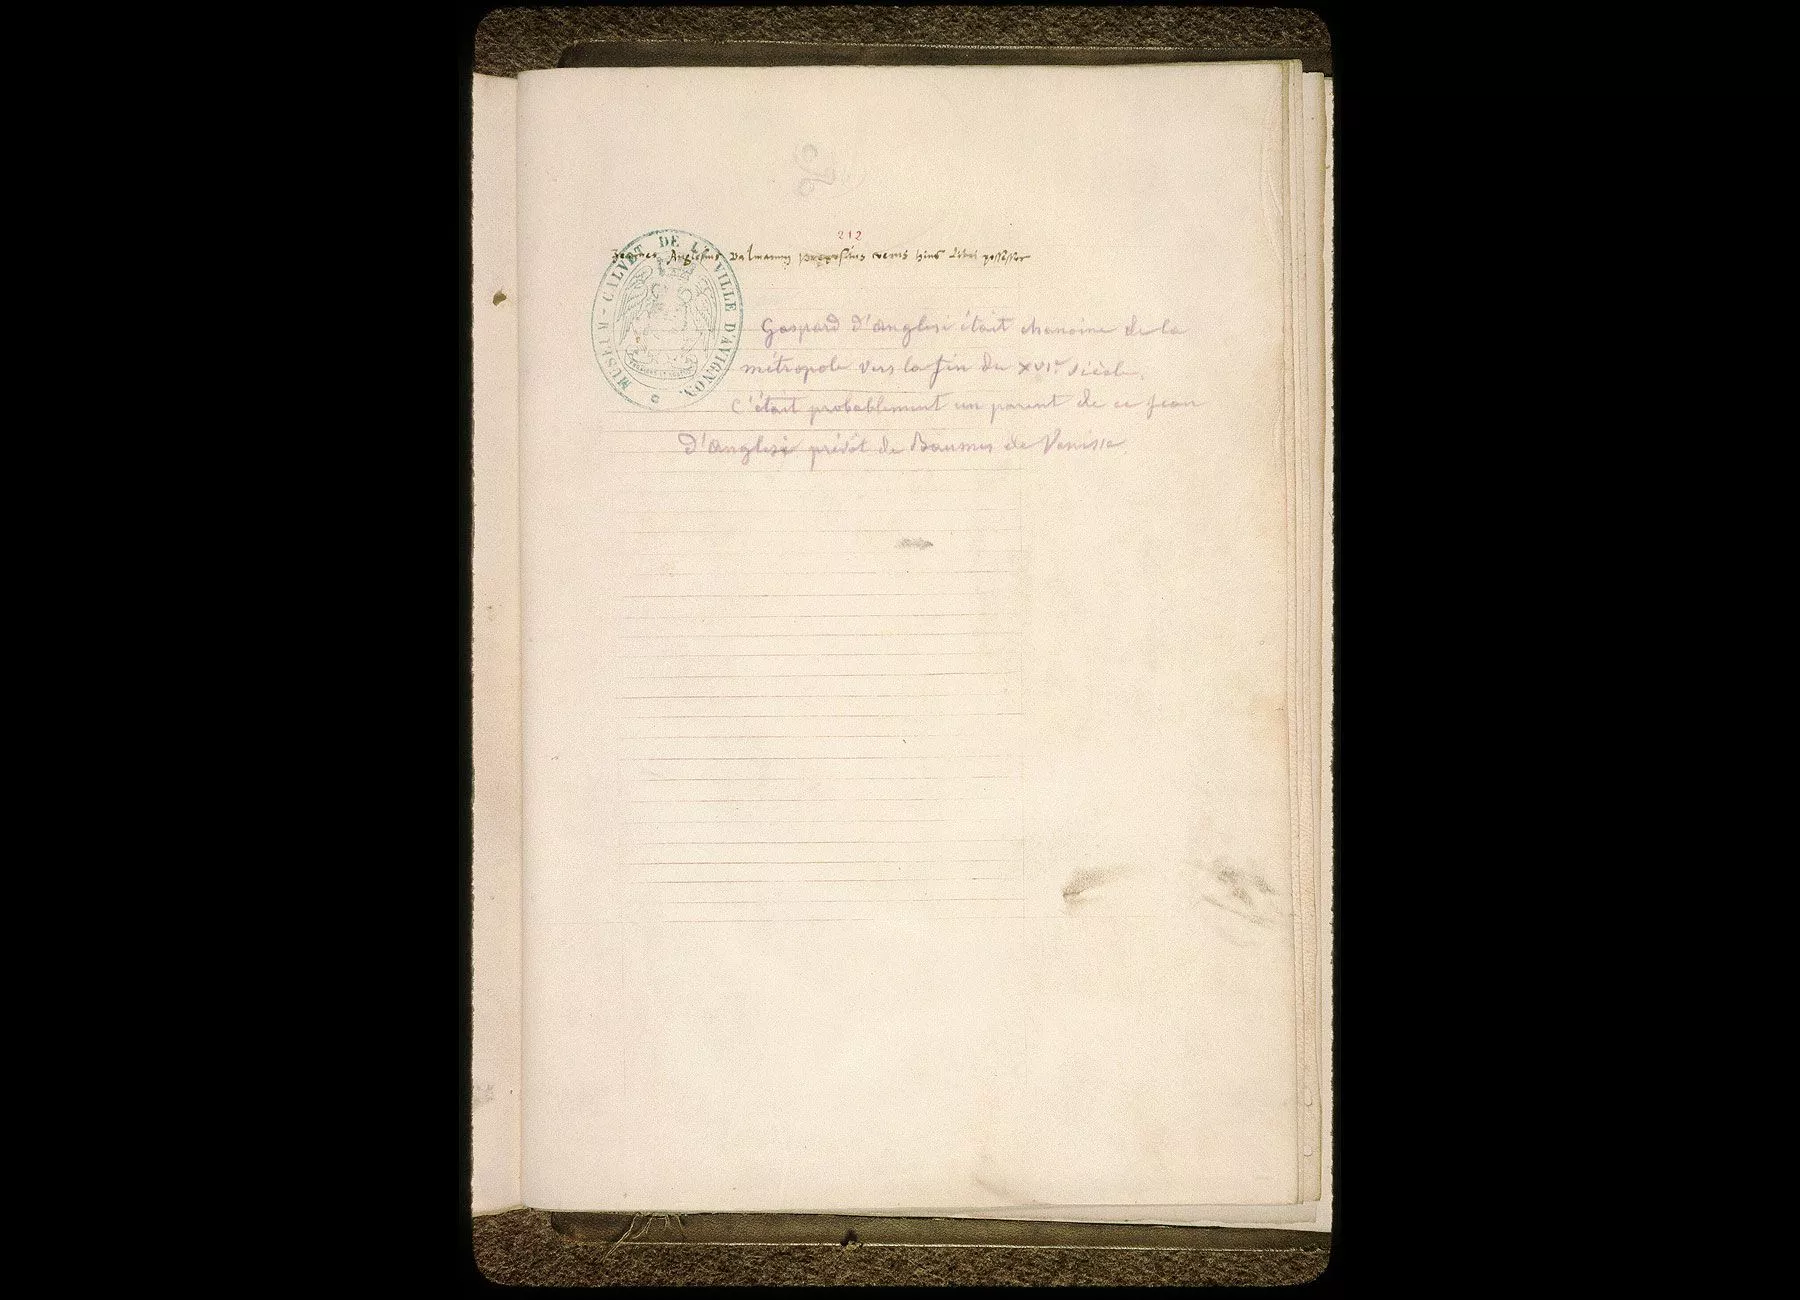 212
Joannes Anglesius Balmarum prepositus verus huius libri possessor
MUSEUM-CALVET DE LA VILLE D'AVIGNON.
Gaspard d'Anglesi était chanoine de la
métropole vers la fin du XVIe siècle.
C'était probablement un parent de ce Jean
d'Anglesi prévôt de Baumes de Venisse.